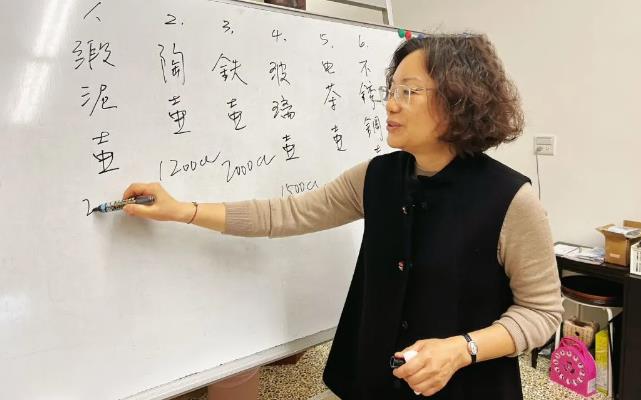 1. 緞泥壺 2
2. 陶壺 1200cc
3. 鉄壺 2000cc
4. 玻璃壺 1500cc
5. 电茶壺
6. 不銹鋼